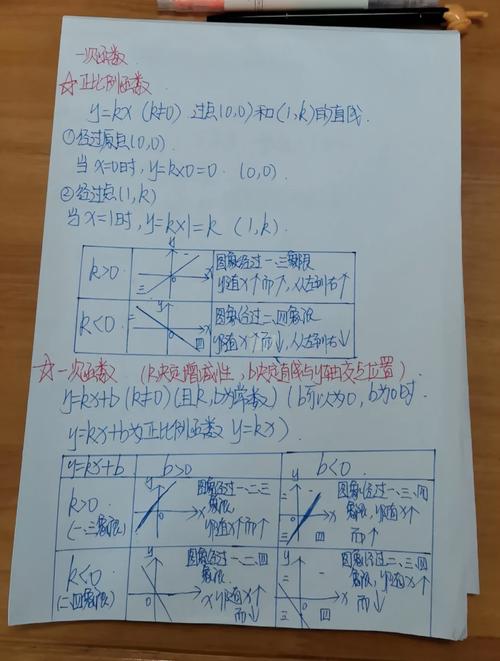 一次函数
☆正比例函数
y=kx (k≠0) 过点(0,0)和(1,k)的直线.
①经过原点(0,0).
当x=0时, y=k×0=0. (0,0).
②经过点(1,k)
当x=1时, y=k×1=k (1,k).
k>0
y
x
0
一
三
图象经过一、三象限
y随x↑而↑, 从左到右↑
k<0
y
x
0
二
四
图象经过二、四象限
y随x↑而↓, 从左到右↓
☆一次函数 (k决定增减性, b决定直线与y轴交点位置)
y=kx+b (k≠0) (且k,b为常数) (b可以为0, b为0时.
y=kx+b为正比例函数 y=kx)
y=kx+b
b>0
b<0.
k>0
(一、三象限)
y
x
0
图象经过一、二、三
象限.
y随x↑而↑
y
x
0
一
三
四
图象经过一、三、四
象限, y随x↑
而↑
k<0
(二、四象限)
y
x
0
图象经过一、二、四
象限.
y随x↑
而↓
y
x
0
二
三
四
图象经过二、三、四
象限, y随x↑
而↓